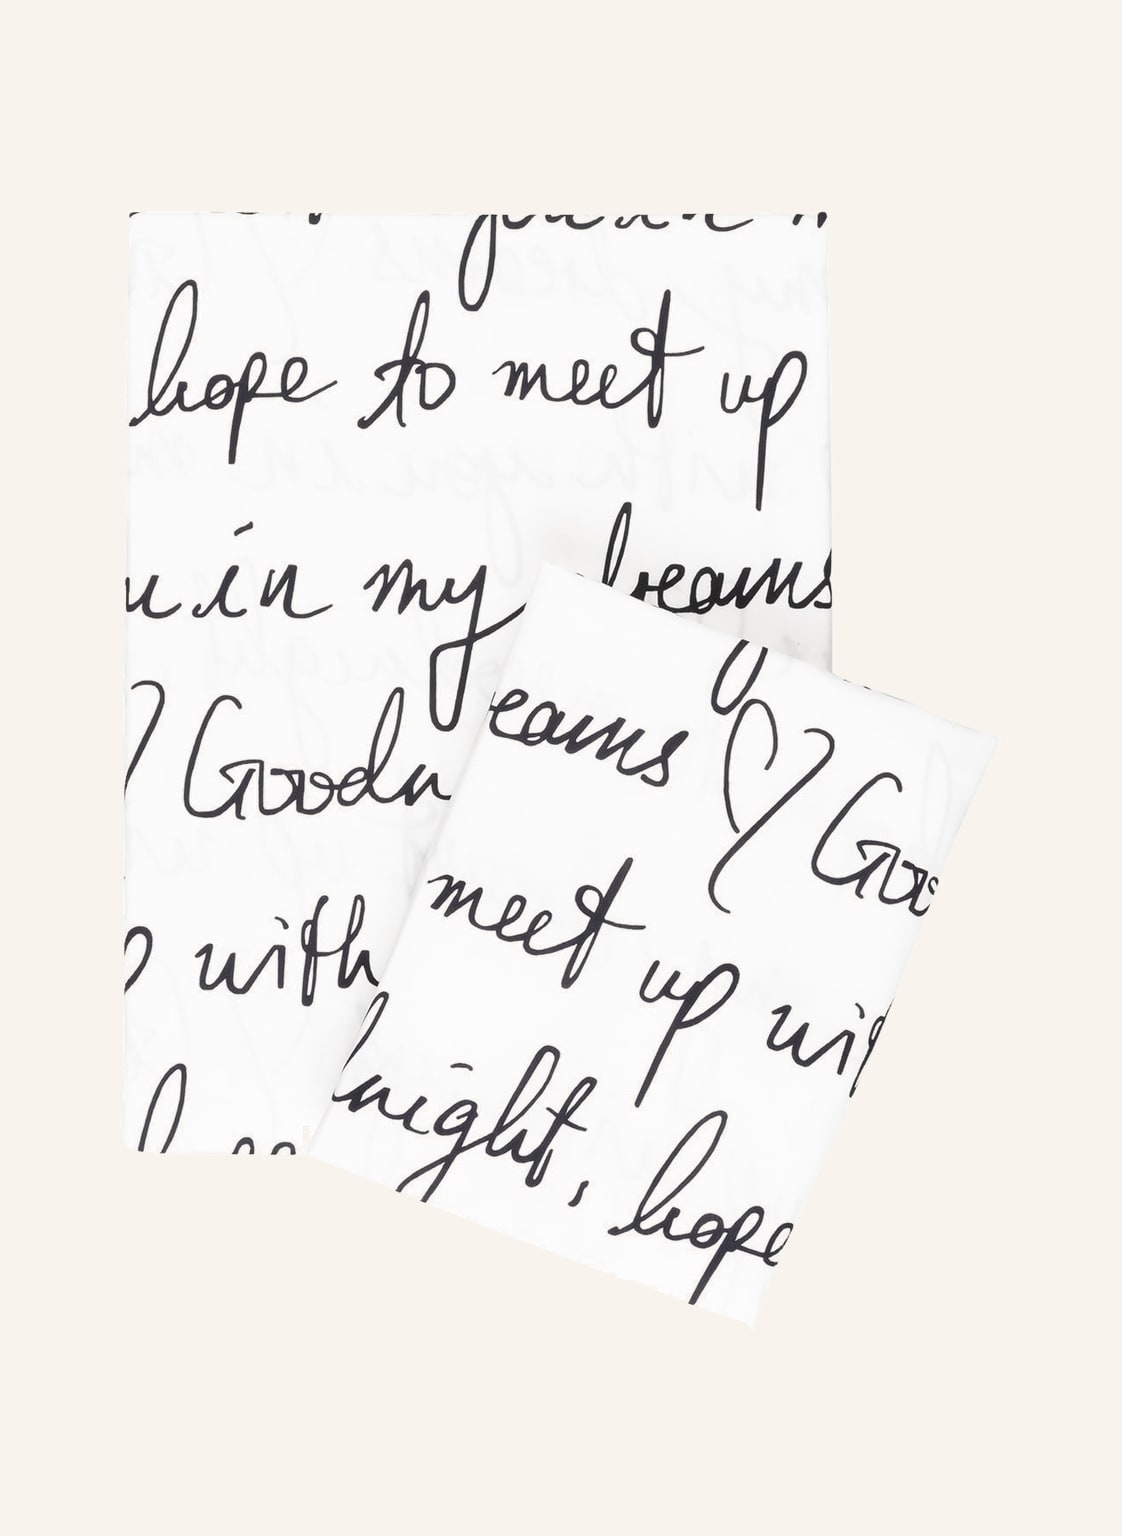 hope to meet up
u in my dreams
Goodn
with
eams ♡ Goo
meet up wit
night, hope